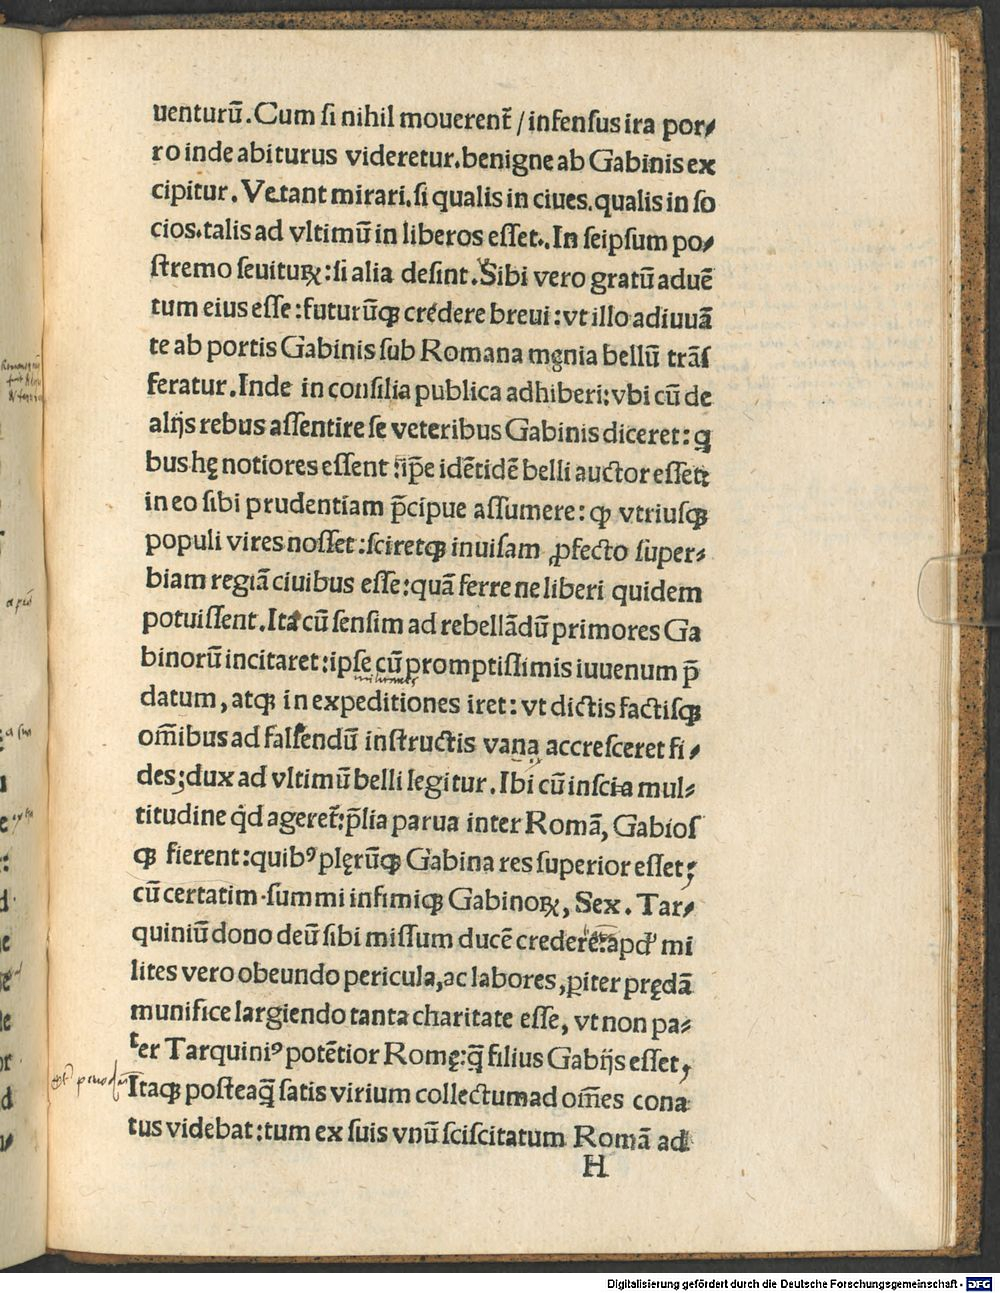 uenturū. Cum si nihil mouerent̄ / infensus ira por⸗
ro inde abiturus videretur. benigne ab Gabinis ex
cipitur. Vetant mirari. si qualis in ciues. qualis in so
cios. talis ad vltimū in liberos esset. In seipsum po⸗
stremo seuituꝝ: si alia desint. Sibi vero gratū aduē
tum eius esse: futurūqꝫ credere breui: vt illo adiuuā
te ab portis Gabinis sub Romana męnia bellū trās
feratur. Inde in consilia publica adhiberi: vbi cū de
alijs rebus assentire se veteribus Gabinis diceret: q
bus hę notiores essent: ip̄e idētidē belli auctor esset:
in eo sibi prudentiam p̄cipue assumere: ꝙ vtriusqꝫ
populi vires nosset: sciretqꝫ inuisam ꝓfecto super⸗
biam regiā ciuibus esse: quā ferre ne liberi quidem
potuissent. Ita cū sensim ad rebellādū primores Ga
binorū incitaret: ipse cū promptissimis iuuenum p̄
datum, atqꝫ in expeditiones iret: vt dictis factisqꝫ
om̄ibus ad fallendū instructis vana accresceret fi⸗
des; dux ad vltimū belli legitur. Ibi cū inscia mul⸗
titudine qd ageret̄: p̄lia parua inter Romā, Gabios
qꝫ fierent: quibꝰ plęrūqꝫ Gabina res superior esset;
cū certatim summi infimiqꝫ Gabinoꝝ, Sex. Tar⸗
quiniū dono deū sibi missum ducē crederēt: apd' mi
lites vero obeundo pericula, ac labores, ꝑiter prędā
munifice largiendo tanta charitate esse, vt non pa⸗
ter Tarquiniꝰ potētior Romę: q̄ filius Gabijs esset,
Itaqꝫ posteaq̄ satis virium collectum ad om̄es cona
tus videbat: tum ex suis vnū sciscitatum Romā ad
H
Digitalisierung gefördert durch die Deutsche Forschungsgemeinschaft - DFG